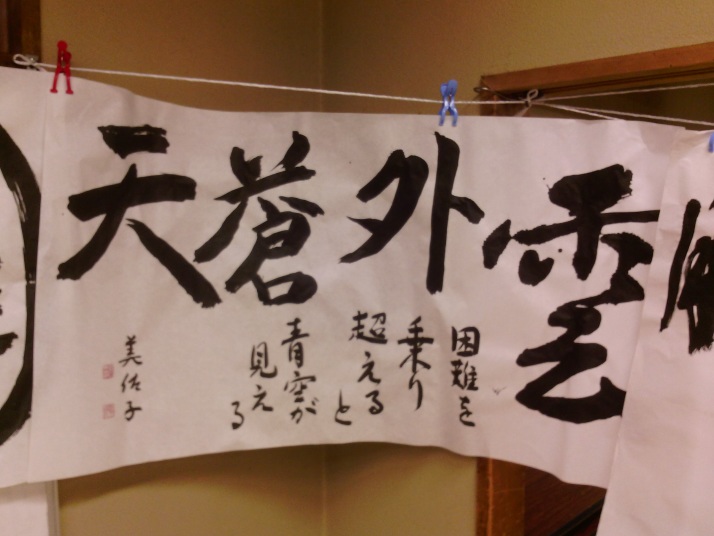 雲外蒼天
困難を
乗り
超えると
青空が
見える
美佐子